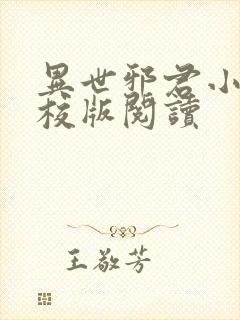 異世邪君小
校版閱讀
王敬芳